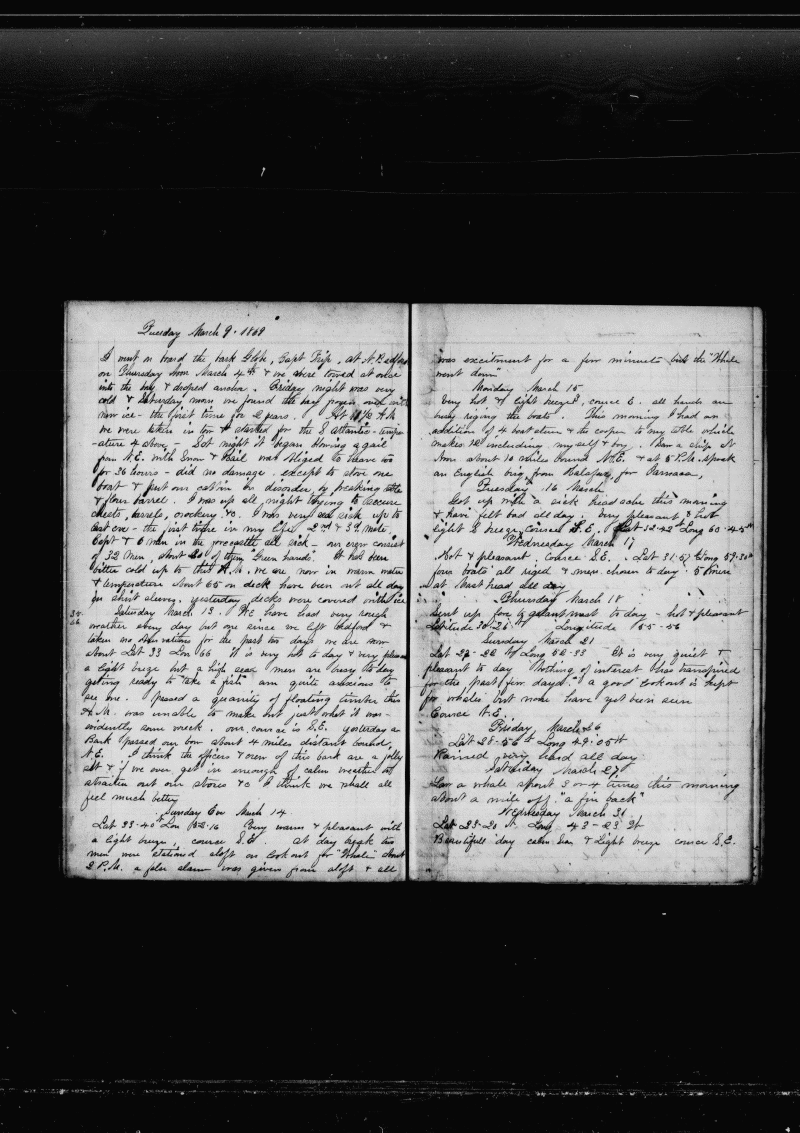 Tuesday March 9. 1869
I went on board the bark Globe, Capt Tripp, at N. Bedford
on Thursday Noon March 4th & we were towed at once
into the bay & droped anchor. Friday night was very
cold & Saturday morn we found the bay frozen over with
new ice - the first time for 2 years. At 10½ A.M
we were taken in tow & started for the S atlantic - tempe-
-ature 4 above - Sat night it began blowing a gail
from N.E. with Snow & Hail was obliged to heave too
for 36 hours - did no damage except to stove one
boat & put our cabin in disorder by breaking table
& flour barrel. I was up all night trying to secure
chests, barrels, crockery &c. I was very sea sick up to
last eve - the first time in my life 2nd & 3d Mate,
Capt & 6 men in the forecastle all sick - our crew consist
of 32 Men, about 20 of them "Green hands". It has been
bitter cold up to this A.M. we are now in warm water
& temperature about 65 on deck have been out all day
in shirt sleeves, yesterday decks were covered with ice
Saturday March 13. We have had very rough
weather every day but one since we left Bedford &
taken no observations for the past two days we are now
about Lat 33 Lon 66 it is very hot to day & very pleasant
a light breze but a high sea men are busy to day
getting ready to take a fish am quite anxious to
see one. Passed a quanity of floating timber this
A.M. was unable to make out just what it was -
evidently some wreck. our course is S.E. yesterday a
Bark passed our bow about 4 miles distant bound
N.E. I think the officers & crew of this bark are a jolly
set & if we ever get in enough of calm weather to
straiten out our stores &c I think we shall all
feel much better
Sunday Eve March 14
Lat 33-40 Lon 62-16 Very warm & pleasant with
a light breeze, course S.E at day break two
men were stationed aloft on lookout for "Whale" about
2 P.M. a false alarm was given from aloft & all
was excitment for a few minuets but the "Whale
went down"
Monday March 15
Very hot & light breeze, course E. all hands are
busy riging the boats. This morning I had an
addition of 4 boat steers & the cooper to my table which
makes 12 including myself & boy. Saw a ship at
Noon about 10 miles bound N.E. & at 5 P.M. spoak
an English brig from Halafax, for
Tuesday. 16 March.
Got up with a sick head ache this morning
& have felt bad all day. Very pleasant, & hot
light S breeze Course S.E. Lat 32-42 Long 60-45
Wednesday March 17
Hot & pleasant. Course S.E. Lat 31-57 Long 59-30
four boats all riged & men chosen to day. 5 more
at Mast head all day
Thursday March 18
Sent up fore to gallant mast to day - hot & pleasant
Latitude 30-26 N Longitude 55-56
Sunday March 21
Lat 29-22 N Long 52-33 It is very quiet &
pleasant to day Nothing of interest has transpired
for the past few days. a good lookout is kept
for whales but none have yet been seen
Course S.E.
Friday March 26
Lat 28-56 N Long 49-05 W
Rained very hard all day
Saturday March 27
Saw a whale spout 3 or 4 times this morning
about a mile off. "a fin back"
Wednesday March 31
Lat 23-20 N. Long 43-23 W
Beautifull day calm Sea & Light breeze course S.E.